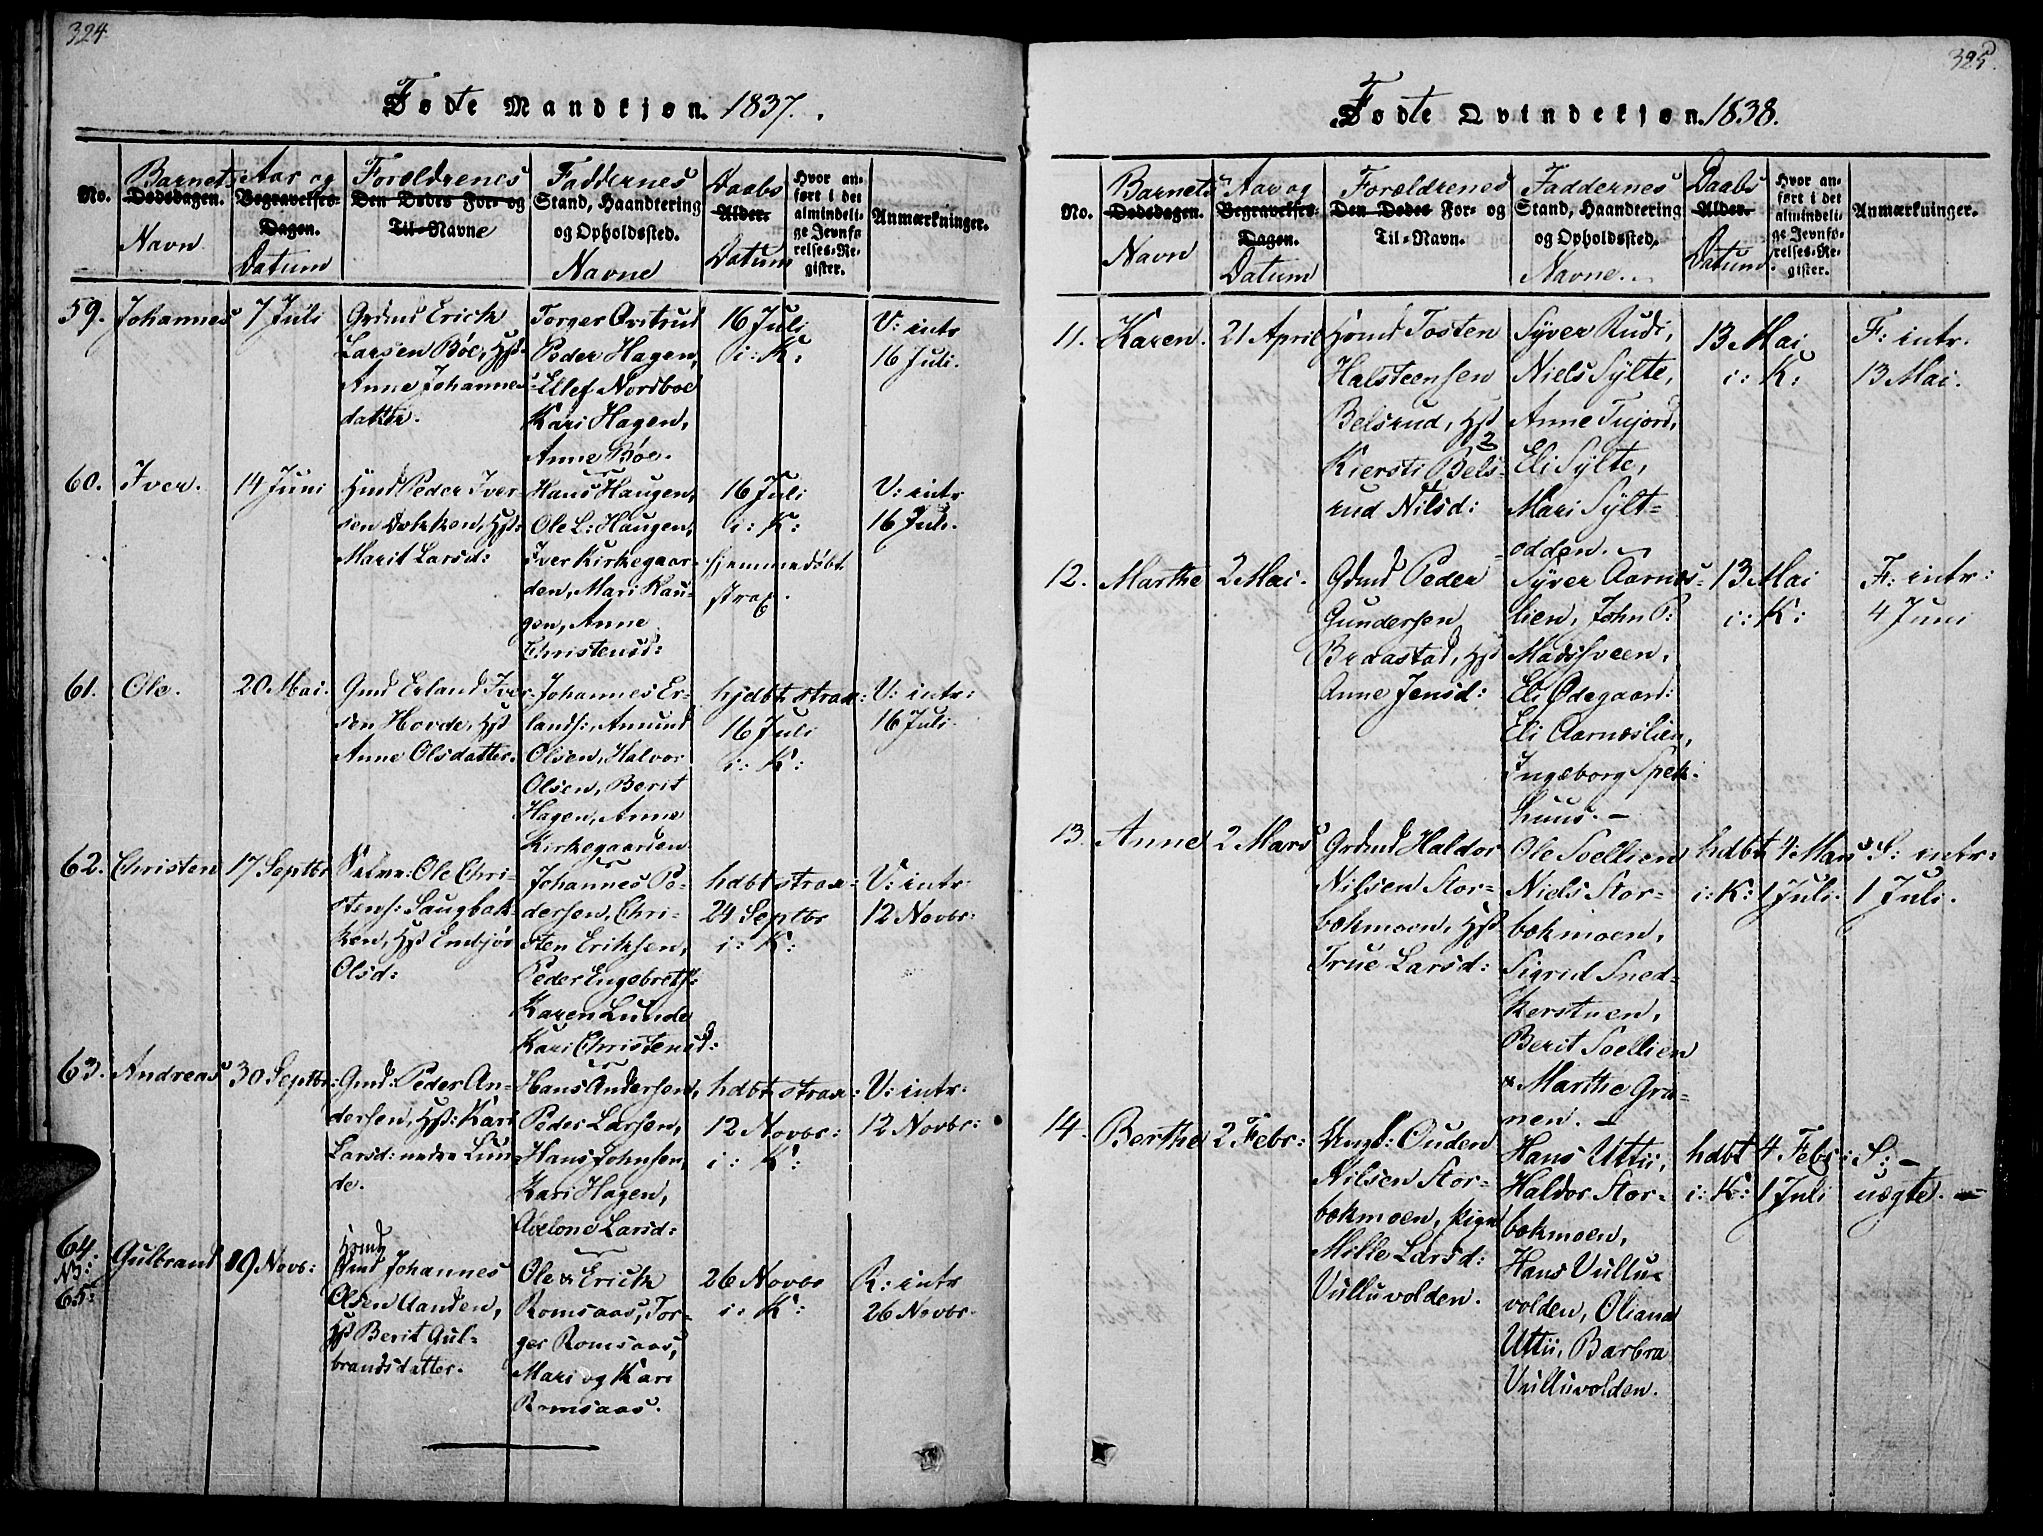 324
Fødte Mandkjøn. 1837.
No.
Barnets
Dødsdagen.
Navn
Aar og
Begravelses-
Dagen.
Datum
Forældrenes
Den Dødes For- og
Til-Navne
Faddernes
Stand, Haandtering
og Opholdssted.
Navne
Daabs
Alder.
Datum
Hvor an-
ført i det
almindeli-
ge Jevnfø-
relses-Re-
gister.
Anmærkninger.
59. Johannes 7 Juli
Grdmd Erich
Larsen Bøe, Hst.
Anne Johannes-
datter.
Torger Qvitrud
Peder Hagen,
Ellef Nordboe
Kari Hagen,
Anne Bøe.
16 Juli
i: K:
V: intr
16 Juli.
60. Iver. 14 Juni
Hmd Peder Iver-
sen Dokken, Hst:
Marit Larsd:
Hans Haugen,
Ole L: Haugen,
Iver Kirkegaar-
den, Mari Hau-
gen, Anne
Christensd:
16 Juli
i: K:
hjemmedøbt
strax.
V: intr
16 Juli.
61. Ole. 20 Mai.
Gmd Erland Iver-
sen Hovde, Hst
Anne Olsdatter.
Johannes Er-
lands:, Amund
Olsen, Halvor
Olsen, Berit
Hagen, Anne
Kirkegaarden
hjdbt strax:
16 Juli
i: K:
V: intr:
16 Juli.
62. Christen 17 Septbr
Ole Chri-
stens: Saugbak-
ken, Hst Embjør
Olsd:
Johannes Pe-
dersen, Chri-
sten Eriksen,
Peder Engebrets:
Karen Lunde
Kari Christensd:
hdbt strax:
24 Septbr
i: K:
V: intr:
12 Novbr:
63. Andreas 30 Septbr:
Gmd: Peder An-
dersen, Hst: Kari
Larsd: nedre Lun-
de.
Hans Andersen,
Peder Larsen,
Hans Johnsen,
Kari Hagen,
Axelone Larsd:
hdbt strax:
12 Novbr:
i: K:
V: intr:
12 Novbr:
64.
NB:
65:
Gulbrand 19 Novb:
Hsmd
Johannes
Olsen Aanden,
Hst Berit Gul-
brandsdatter.
Ole & Erich
Romsaas, Tor-
ger Romsaas,
Mari og Kari
Romsaas.
26 Novbr
i: K:
R: intr
26 Novbr.
325.
Fødte Qvindekjøn. 1838.
No.
Barnets
Dødsdagen.
Navn
Aar og
Begravelses-
Dagen.
Datum
Forældrenes
Den Dødes For- og
Til-Navn.
Faddernes
Stand, Haandtering
og Opholdssted.
Navne.
Daabs
Alder.
Datum.
Hvor an-
ført i det
almindeli-
ge Jevnfø-
relses-Re-
gister.
Anmærkninger.
11. Karen. 21 April
Hsmd Tosten
Halsteensen
Belsrud, Hst
Kiersti Bels-
rud Nilsd:
Syver Rudi,
Niels Sylte,
Anne Tujord,
Eli Sylte,
Mari Sylt-
odden.
13 Mai
i: K:
F: intr.
13 Mai.
12. Marthe 2 Mai.
Gdmd Peder
Gundersen
Braastad, Hst
Anne Jensd:
Syver Aarnes-
lien, John P:
Madshveen,
Eli Ødegaard:
Eli Aarneslien,
Ingeborg Spek-
huus. -
13 Mai
i: K:
F: intr:
4 Juni
13. Anne 2 Mars
Grdmd Haldor
Nilsen Stor-
bokmoen, Hst
True Larsd:
Ole Soellien
Niels Stor-
bokmoen,
Sigrid Sned-
kerstuen,
Berit Soellien
& Marthe Gra-
nen. -
hdbt 4: Mars
i: K: 1 Juli.
S: intr:
1 Juli.
14. Berthe 2 Febr:
Ungk: Ouden
Nilsen Stor-
bokmoen, pige
Mille Larsd:
Vulluvolden.
Hans Uttii,
Haldor Stor-
bokmoen,
Hans Vullu-
volden, Oliana
Uttii, Barbra
Vulluvolden.
hdbt 4 Febr:
i: K: 1 Juli
S: -
uægte. -